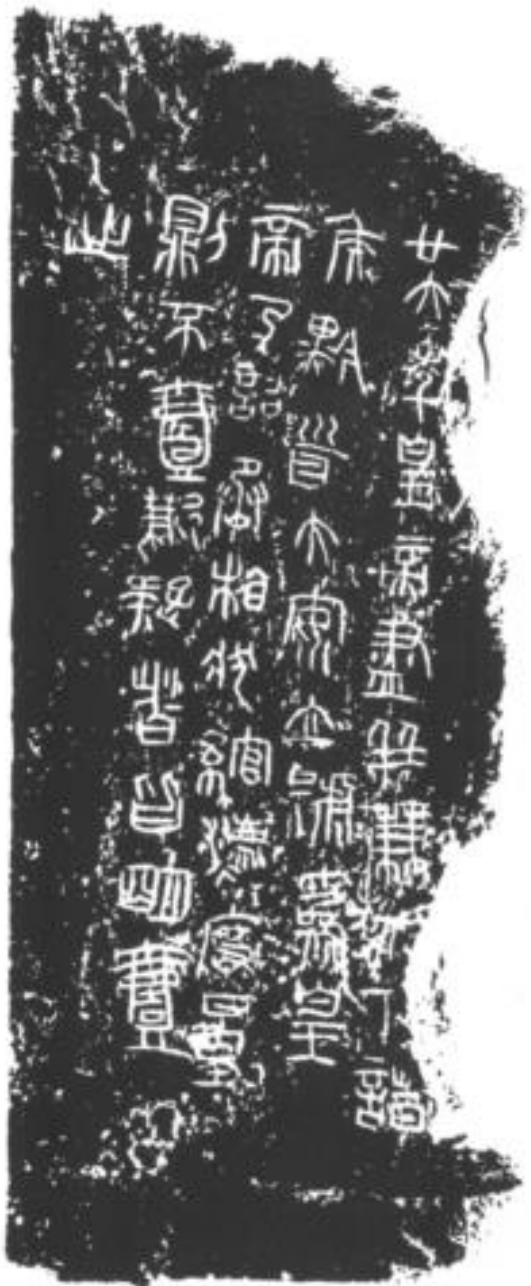 廿六年皇帝盡并兼天下諸
侯黔首大安立號為皇
帝乃詔丞相狀綰灋度量
則不壹歉疑者皆明壹
之